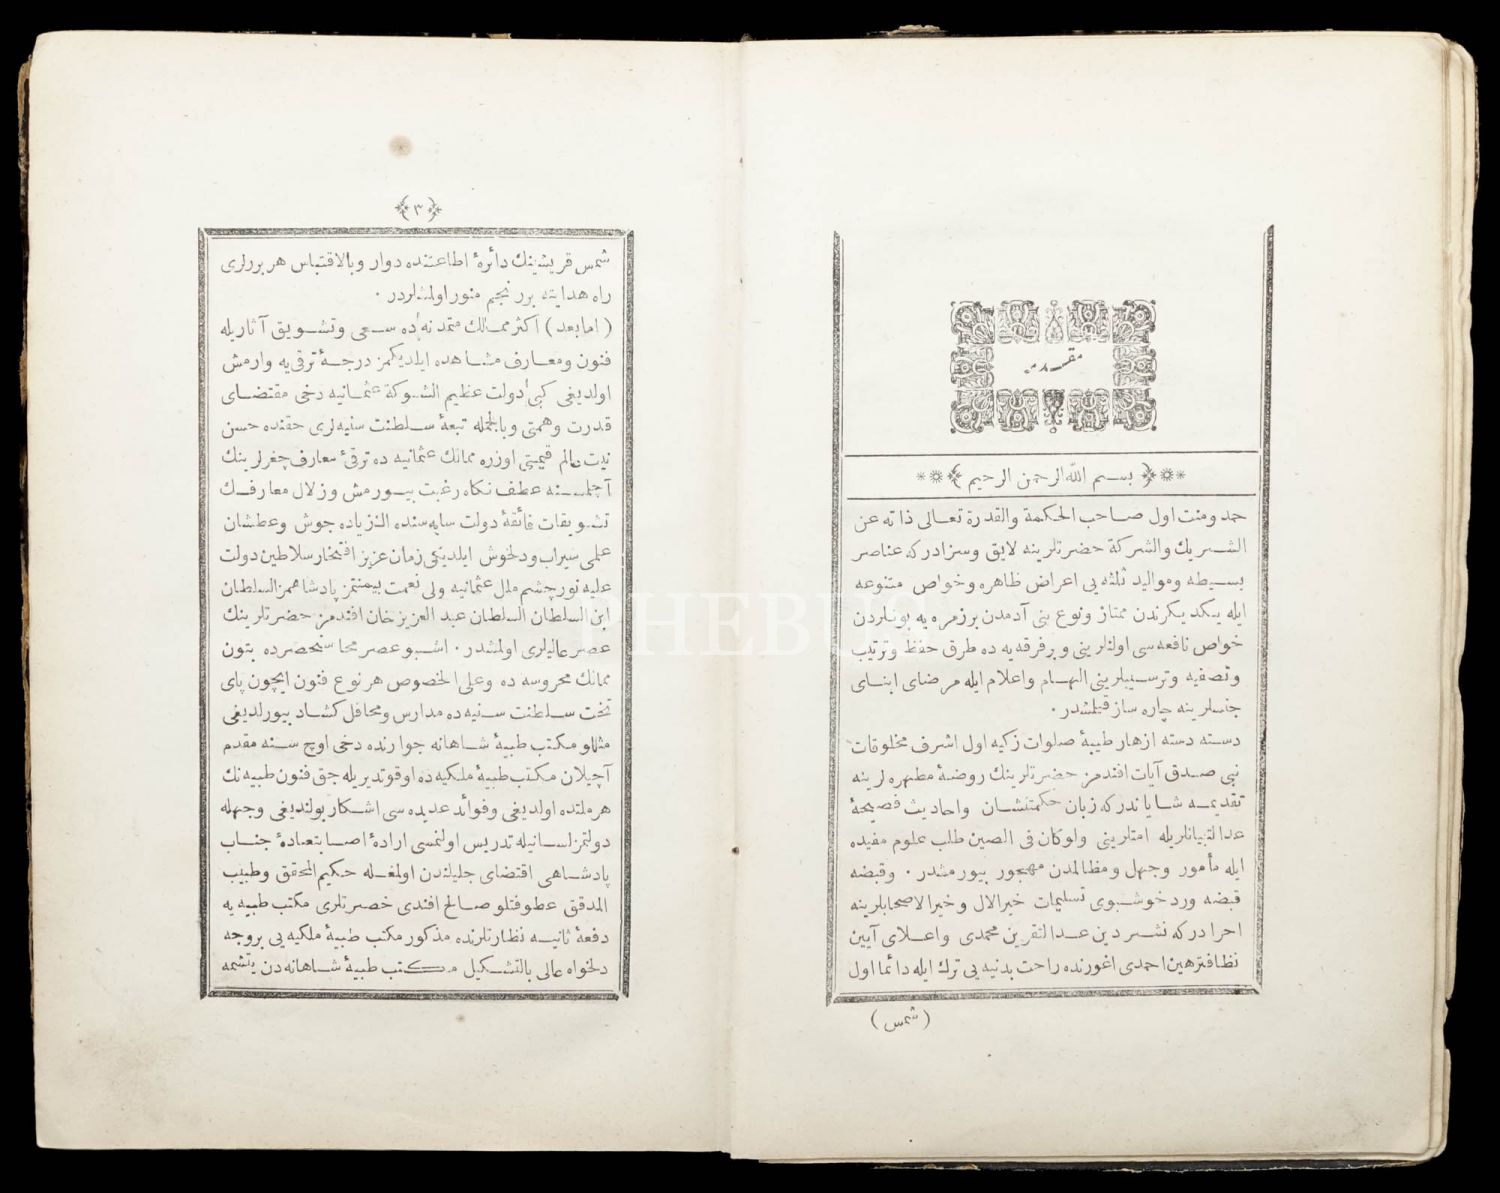 مقدمه
بسم الله الرحمن الرحيم
حمد ومنت اول صاحب الحكمة والقدرة تعالى ذاته عن
الشريك والشركة حضرتلرينه لايق وسزادركه عناصر
بسيطه ومواليد ثلثه يى اعراض ظاهره وخواص متنوعه
ايله يكديكرندن ممتاز ونوع بنى آدمدن برزمره يه بونلردن
خواص نافعه سى اولنلرينى وبرفرقه يه ده طرق حفظ وترتيب
وتصفيه وترسيبلرينى الهام واعلام ايله مرضاى ابناى
جنسلرينه چاره ساز قيلمشدر ٠
دسته دسته ازهار طيبهٔ صلوات زكيه اول اشرف مخلوقات
نبى صدق آيات افندمز حضرتلرينك روضهٔ مطهره لرينه
تقديمه شاياندركه زبان حكمتنشان واحاديث فصيحهٔ
عدالتبيانلريله امتلرينى ولوكان فى الصين طلب علوم مفيده
ايله مأمور وجهل ومظالمدن مهجور بيورمشدر ٠ وقبضه
قبضه ورد خوشبوى تسليمات خيرالال وخيرالاصحابلرينه
احرادركه نشر دين عدالتقرين محمدى واعلاى آيين
نظافترهين احمدى اغورنده راحت بدنيه يى ترك ايله دائما اول
(شمس)
٣
شمس قريشينك دائرهٔ اطاعتنده دوار وبالاقتباس هربررلرى
راه هدايته برر نجيم منور اولمشلردر ٠
(امابعد) اكثر ممالك متمدنه ده سعى وتشويق آثاريله
فنون ومعارف مشاهده ايلديكمز درجهٔ ترقى يه وارمش
اولديغى كبى دولت عظيم الشوكة عثمانيه دخى مقتضاى
قدرت وهمتى وبالجمله تبعهٔ سلطنت سنيه لرى حقنده حسن
نيت عالم قيمتى اوزره ممالك عثمانيه ده ترقىٔ معارف چغرلرينك
آچلمسنه عطف نكاه رغبت بيورمش وزلال معارفك
تشويقات فائقهٔ دولت سايه سنده الذ زياده جوش وعطشان
علمى سيراب ودلخوش ايلديكى زمان عزيز افتخار سلاطين دولت
عليه نورچشم ملل عثمانيه ولى نعمت بيمنتمز پادشاهمز السلطان
ابن السلطان السلطان عبد العزيز خان افندمز حضرتلرينك
عصر عاليلرى اولمشدر ٠ اشبو عصر محاسنحصرده بتون
ممالك محروسه ده وعلى الخصوص هرنوع فنون ايچون پاى
تخت سلطنت سنيه ده مدارس ومحافل كشاد بيورلديغى
مثللو مكتب طبيهٔ شاهانه جوارنده دخى اوچ سنه مقدم
آچيلان مكتب طبيهٔ ملكيه ده اوقوتديريله جق فنون طبيه نك
هرملتده اولديغى وفوائد عديده سى اشكار بولنديغى وجهله
دولتمز لسانيله تدريس اولنمسى ارادهٔ اصابتعادهٔ جناب
پادشاهى اقتضاى جليلندن اولمغله حكيم المحقق وطبيب
المدقق عطوفتلو صالح افندى حضرتلرى مكتب طبيه يه
دفعهٔ ثانيه نظارتلرنده مذكور مكتب طبيهٔ ملكيه يى بروجه
دلخواه عالى بالتشكيل مكتب طبيهٔ شاهانه دن يتشمه
PHEBUS